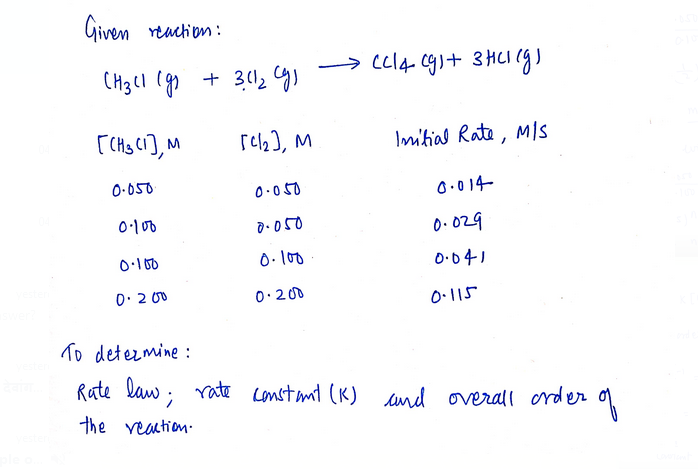 Given reaction:
CH3Cl (g) + 3Cl2 (g) → CCl4 (g) + 3HCl (g)
[CH3Cl], M [Cl2], M Initial Rate, M/S
0.050 0.050 0.014
0.100 0.050 0.029
0.100 0.100 0.041
0.200 0.200 0.115
To determine:
Rate law; rate constant (K) and overall order of
the reaction.